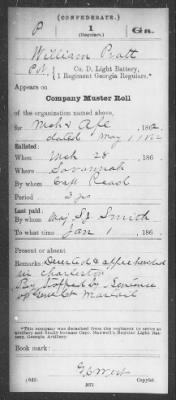 (CONFEDERATE.)
P 1 Ga.
(Regulars.)
William Pratt
Pvt, Co. D, Light Battery,
1 Regiment Georgia Regulars.*
Appears on
Company Muster Roll
of the organization named above,
for Mch & Apl, 1862.
dated May 1, 1862
Enlisted:
When Mch 28, 186 .
Where Savannah
By whom Capt Read
Period 3 yrs
Last paid:
By whom Maj S. Smith
To what time Jan 1, 186 .
Present or absent
Remarks: Deserted & apprehended
in Charleston
Pay stopped by Sentence
of Genl Ct Martial
*This company was detached from the regiment to serve as artillery and finally became Capt. Maxwell's Regular Light Battery, Georgia Artillery.
Book mark:
(642) Copyist.